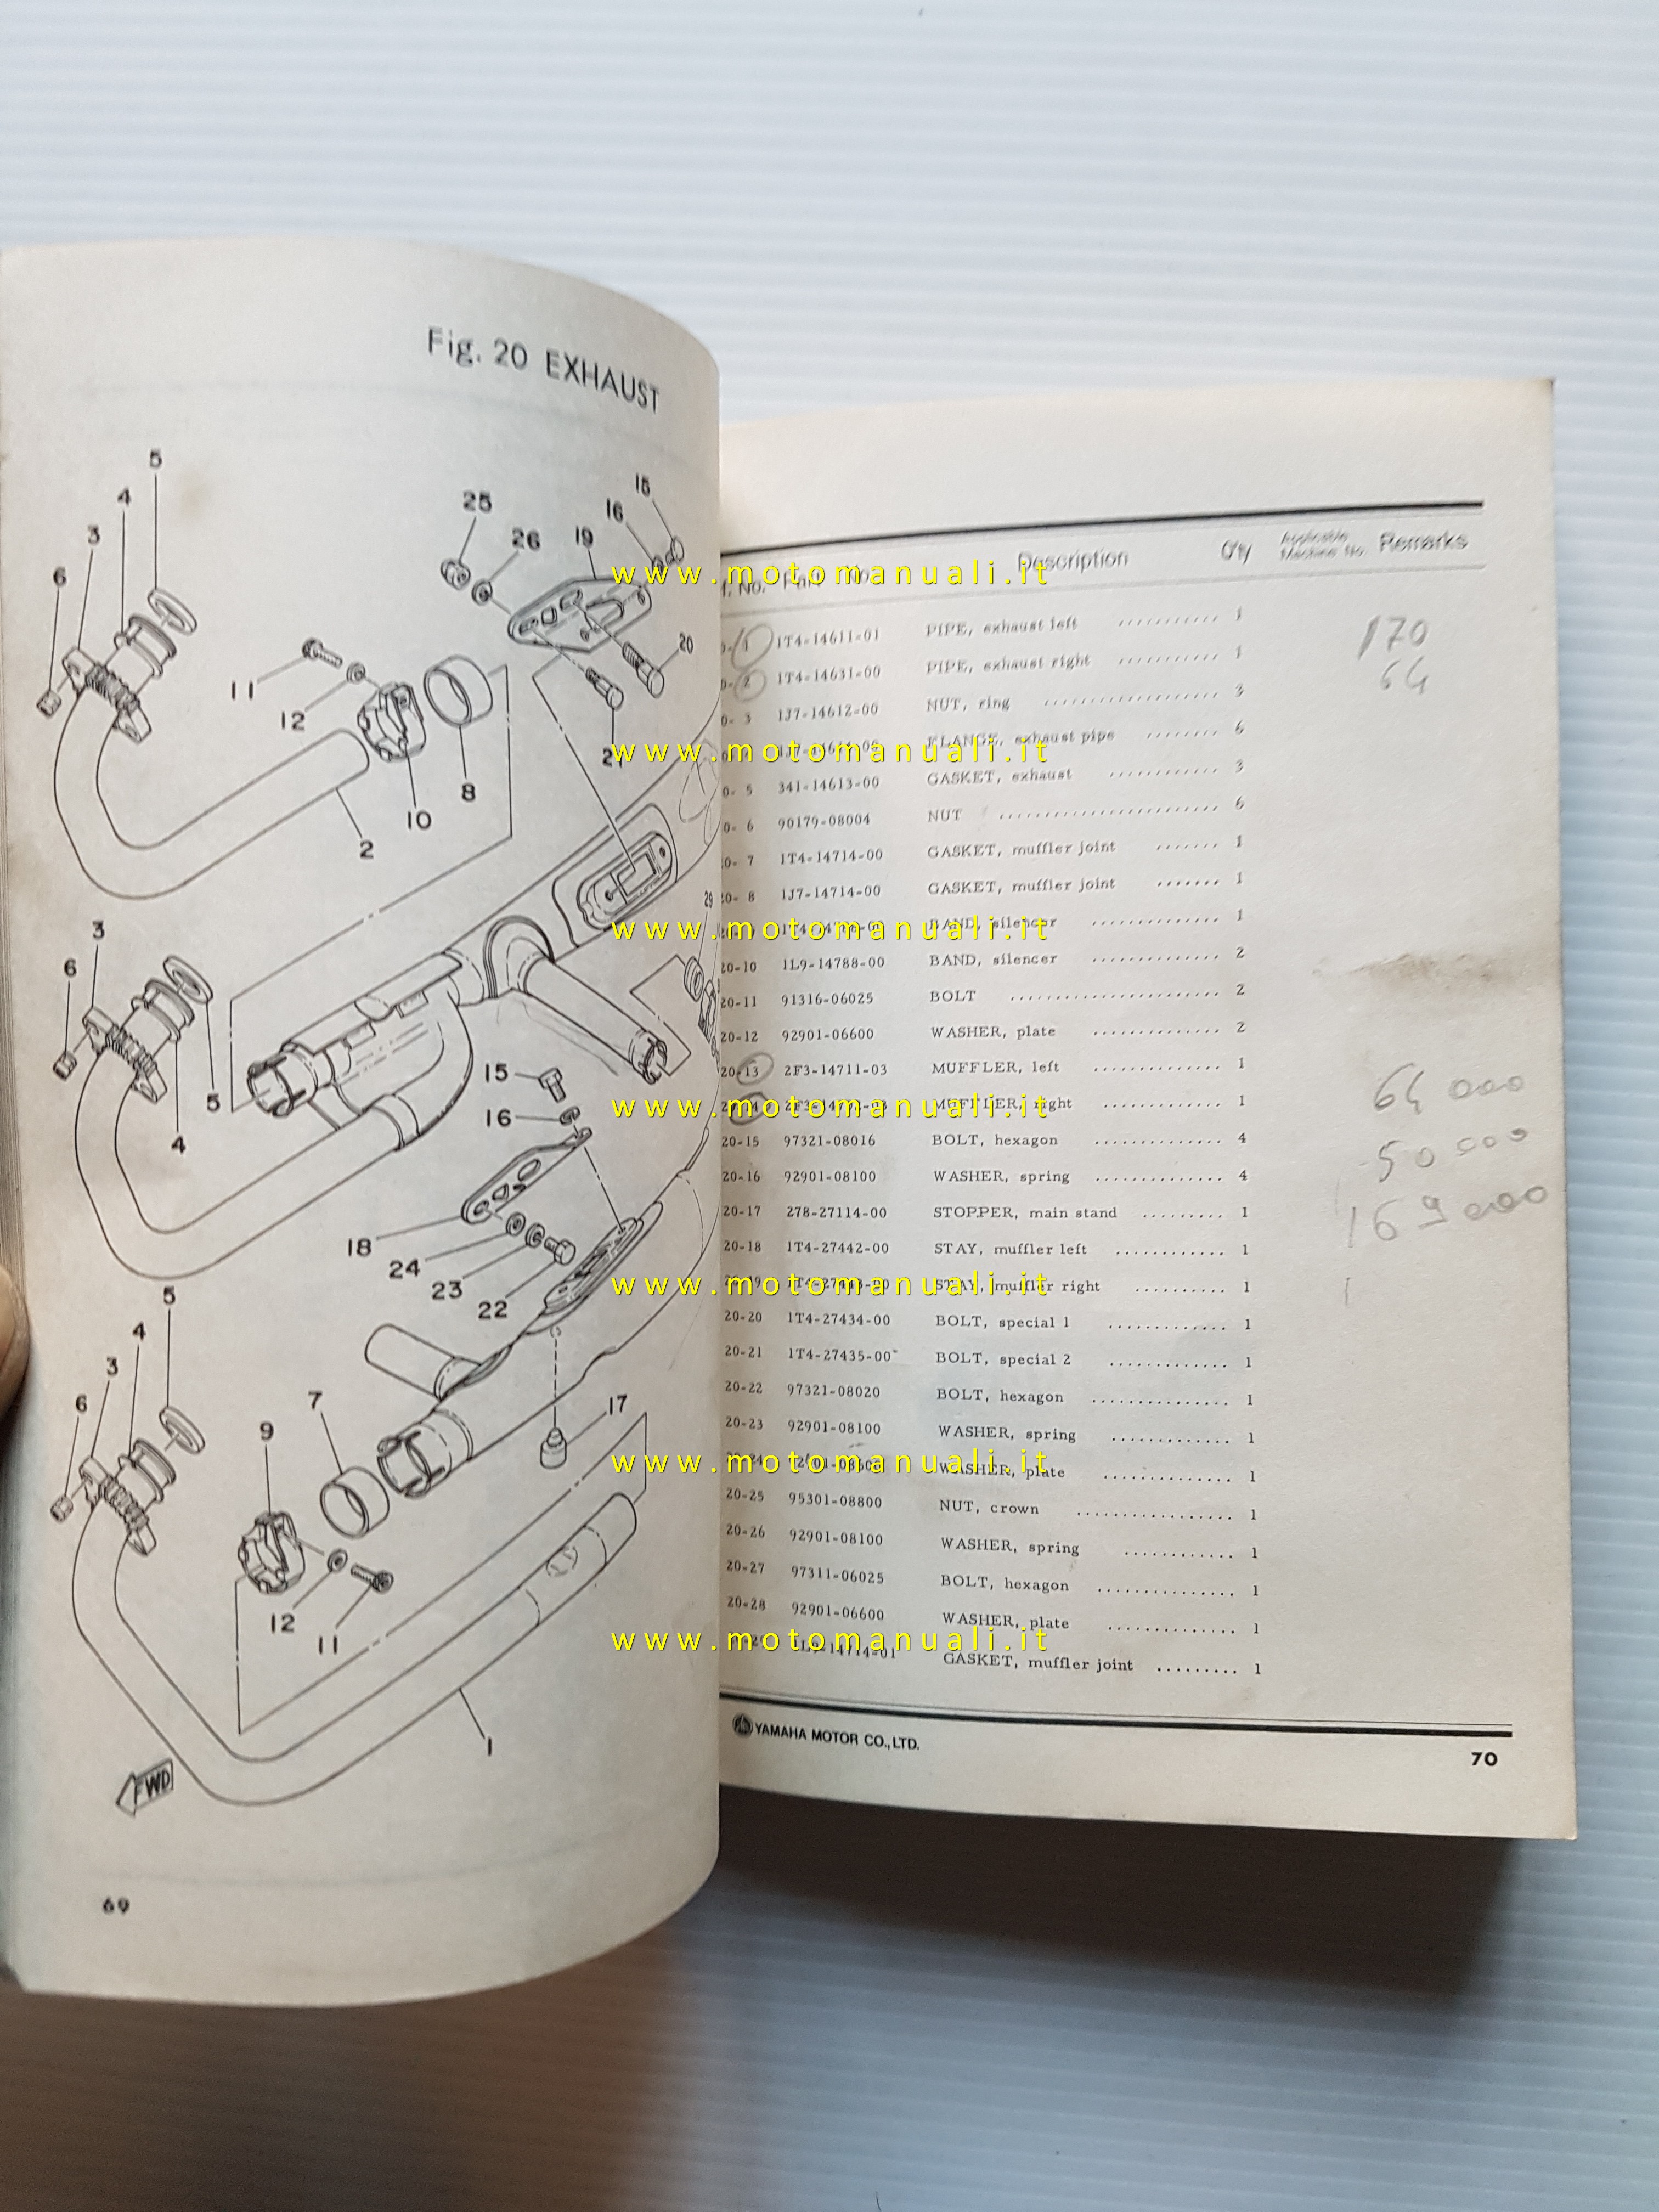 Fig. 20 EXHAUST
5
4
3
6
25
26
19
16
15
20
11
12
21
8
10
2
29
3
6
5
4
15
16
18
24
23
22
5
4
3
6
7
9
17
12
11
1
FWD
69
No. Part No. Description Q'ty Applicable Machine No. Remarks
1 1T4-14611-01 PIPE, exhaust left 1
170
2 1T4-14631-00 PIPE, exhaust right 1
64
3 1J7-14612-00 NUT, ring 3
FLANGE, exhaust pipe 6
5 341-14613-00 GASKET, exhaust 3
6 90179-08004 NUT 6
7 1T4-14714-00 GASKET, muffler joint 1
8 1J7-14714-00 GASKET, muffler joint 1
BAND, silencer 1
20-10 1L9-14788-00 BAND, silencer 2
20-11 91316-06025 BOLT 2
20-12 92901-06600 WASHER, plate 2
20-13 2F3-14711-03 MUFFLER, left 1
64 000
MUFFLER, right 1
20-15 97321-08016 BOLT, hexagon 4
50 000
20-16 92901-08100 WASHER, spring 4
169 000
20-17 278-27114-00 STOPPER, main stand 1
20-18 1T4-27442-00 STAY, muffler left 1
STAY, muffler right 1
20-20 1T4-27434-00 BOLT, special 1 1
20-21 1T4-27435-00 BOLT, special 2 1
20-22 97321-08020 BOLT, hexagon 1
20-23 92901-08100 WASHER, spring 1
WASHER, plate 1
20-25 95301-08800 NUT, crown 1
20-26 92901-08100 WASHER, spring 1
20-27 97311-06025 BOLT, hexagon 1
20-28 92901-06600 WASHER, plate 1
GASKET, muffler joint 1
YAMAHA MOTOR CO., LTD.
70
www.motomanuali.it
www.motomanuali.it
www.motomanuali.it
www.motomanuali.it
www.motomanuali.it
www.motomanuali.it
www.motomanuali.it